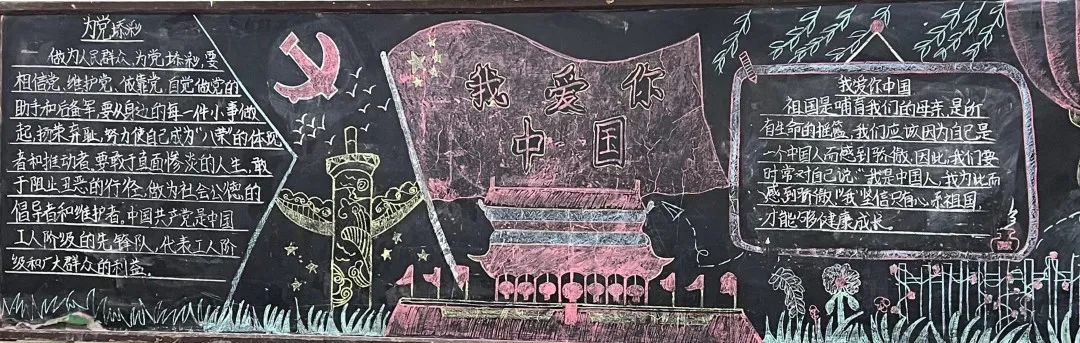 为党添彩
做为人民群众,为党添彩,要
相信党,维护党,依靠党,自觉做党的
助手和后备军,要从身边的每一件小事做
起,扬荣弃耻,努力使自己成为“八荣”的体现
者和推动者,要敢于直面惨淡的人生,敢
于阻止丑恶的行径,做为社会公德的
倡导者和维护者,中国共产党是中国
工人阶级的先锋队,代表工人阶
级和广大群众的利益.
我爱你
中国
我爱你中国
祖国是哺育我们的母亲,是所
有生命的摇篮,我们应该因为自己是
一个中国人而感到骄傲,因此,我们要
时常对自己说:“我是中国人,我为此而
感到骄傲!”我坚信只有心系祖国,
才能够健康成长